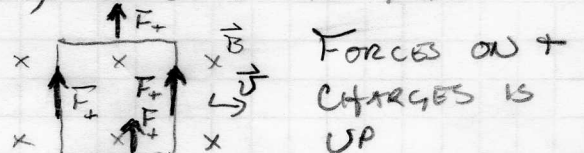 F₊
x x x B⃗
F₊ F₊ v⃗
F₊
x x x
FORCES ON +
CHARGES IS
UP